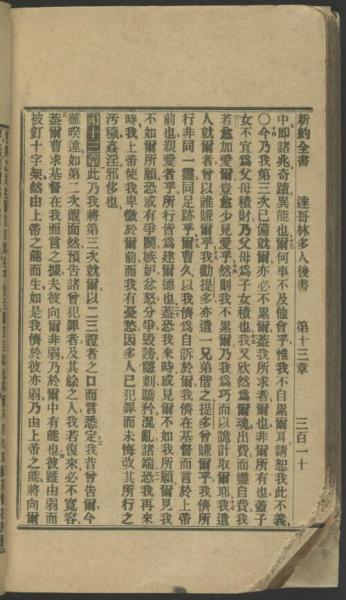 新約全書 達哥林多人後書 第十三章 三百一十
中、即諸兆奇蹟異能也、爾何事不及他會乎、惟我不自累爾耳、請恕我此不義、
○今乃我第三次已備就爾、亦必不累爾、蓋我所求者爾也、非爾所有也、蓋子
女不宜爲父母積財、乃父母爲子女積也、我又欣然爲爾魂出費而盡自費、我
若愈加愛爾、豈愈少見愛乎、然則我不累爾、乃我爲巧而以詭計取爾耶、我遺
人就爾者、曾以誰賺爾乎、我勸提多、亦遣一兄弟偕之、提多曾賺爾乎、我儕所
行、非同一靈同足跡乎、爾曹久以我儕爲自訴於爾、我儕在基督而言於上帝
前也、親愛者乎、所行皆爲建爾德也、蓋恐我來時、或見爾不如我所願、爾見我
不如爾所願、恐或有爭鬬、嫉妒、忿怒、分爭、毀謗、隱刺、驕矜、混亂諸端、恐我再來
時、我上帝使我卑微於爾前、而我有憂愁、因多人已犯罪、而未悔改其所行之
汚穢、姦淫、邪侈也、
第十三章 此乃我將第三次就爾、以二三證者之口、而言悉定、我昔曾告爾、今
雖暌違、如第二次覿面然、預告諸曾犯罪者、及其餘之人、我若復來、必不寬容、
蓋爾曹求基督在我而言之據、夫彼向爾非弱、乃於爾中有能也、彼雖由弱而
被釘十字架、然由上帝之能而生、如是我儕於彼亦弱、乃由上帝之能、將向爾